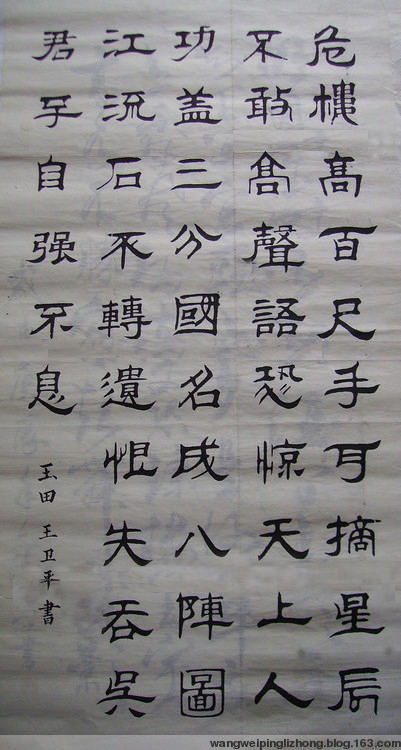 危樓高百尺手可摘星辰
不敢高聲語恐惊天上人
功盖三分國名成八陣圖
江流石不轉遺恨失吞吳
君子自强不息
玉田 王卫平書
wangweipinglizhong.blog.163.com